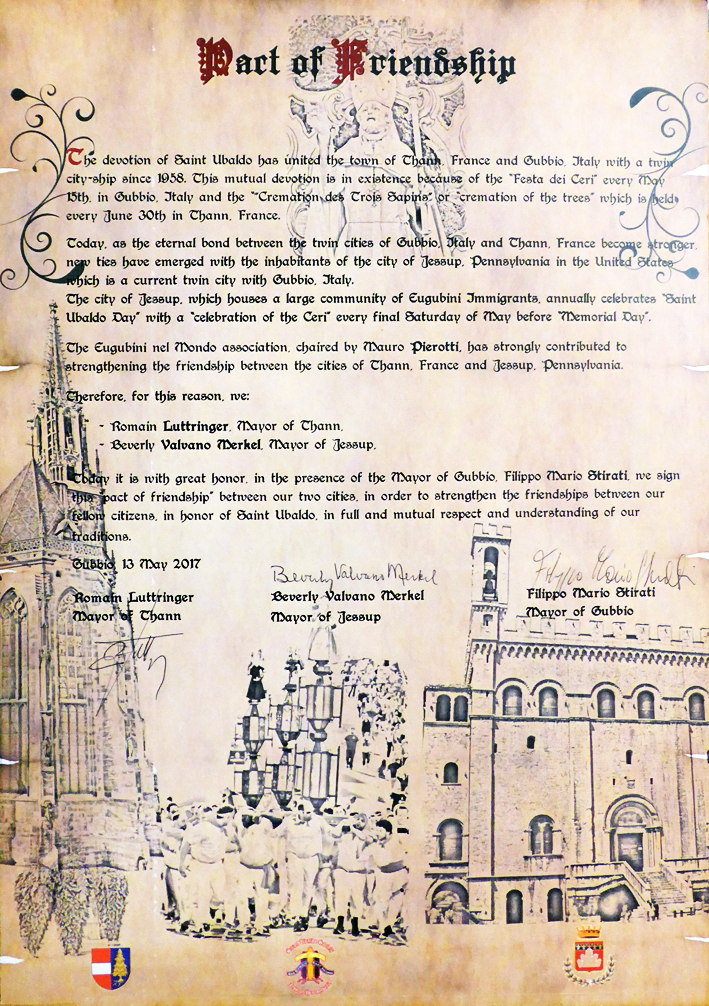 Pact of Friendship
The devotion of Saint Ubaldo has united the town of Thann, France and Gubbio, Italy with a twin
city-ship since 1958. This mutual devotion is in existence because of the "Festa dei Ceri" every May
15th, in Gubbio, Italy and the "Cremation des Trois Sapins" or "cremation of the trees" which is held
every June 30th in Thann, France.
Today, as the eternal bond between the twin cities of Gubbio, Italy and Thann, France become stronger,
new ties have emerged with the inhabitants of the city of Jessup, Pennsylvania in the United States
which is a current twin city with Gubbio, Italy.
The city of Jessup, which houses a large community of Eugubini Immigrants, annually celebrates "Saint
Ubaldo Day" with a "celebration of the Ceri" every final Saturday of May before "Memorial Day".
The Eugubini nel Mondo association, chaired by Mauro Pierotti, has strongly contributed to
strengthening the friendship between the cities of Thann, France and Jessup, Pennsylvania.
Therefore, for this reason, we:
- Romain Luttringer, Mayor of Thann,
- Beverly Valvano Merkel, Mayor of Jessup,
Today it is with great honor, in the presence of the Mayor of Gubbio, Filippo Mario Stirati, we sign
this "pact of friendship" between our two cities, in order to strengthen the friendships between our
fellow citizens, in honor of Saint Ubaldo, in full and mutual respect and understanding of our
traditions.
Gubbio, 13 May 2017
Beverly Valvano Merkel
Filippo Mario Stirati
Romain Luttringer
Mayor of Thann
Beverly Valvano Merkel
Mayor of Jessup
Filippo Mario Stirati
Mayor of Gubbio